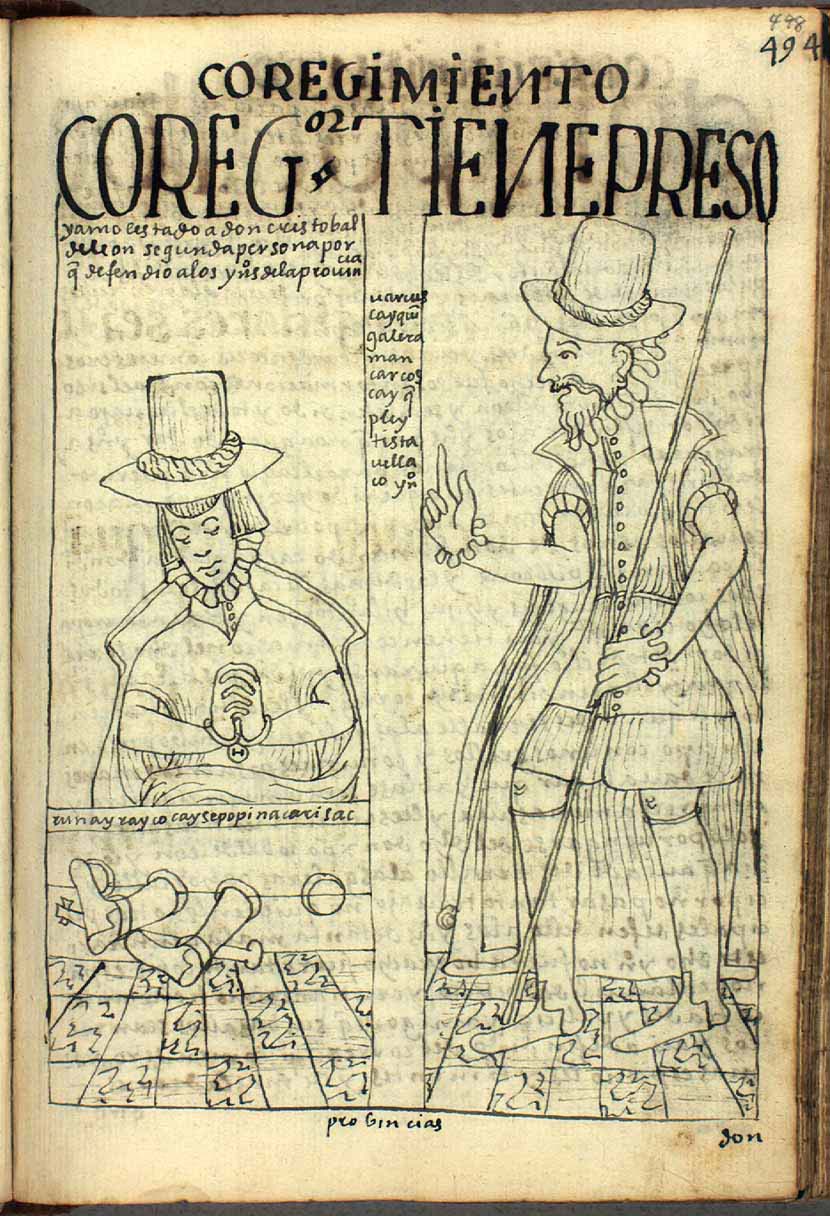 498
494
COREGiMiEИTO
COREG.OR TiEИE PRESO
y amolestado a don cristobal
de leon segunda persona por
q̄ defendio a los yn̄s de la provincia
cayqui
galera
man
carcos
cay q̄
pley
tista
vella
co yn̄o
runa yrayco caysepopi nacarisac
probincias
don